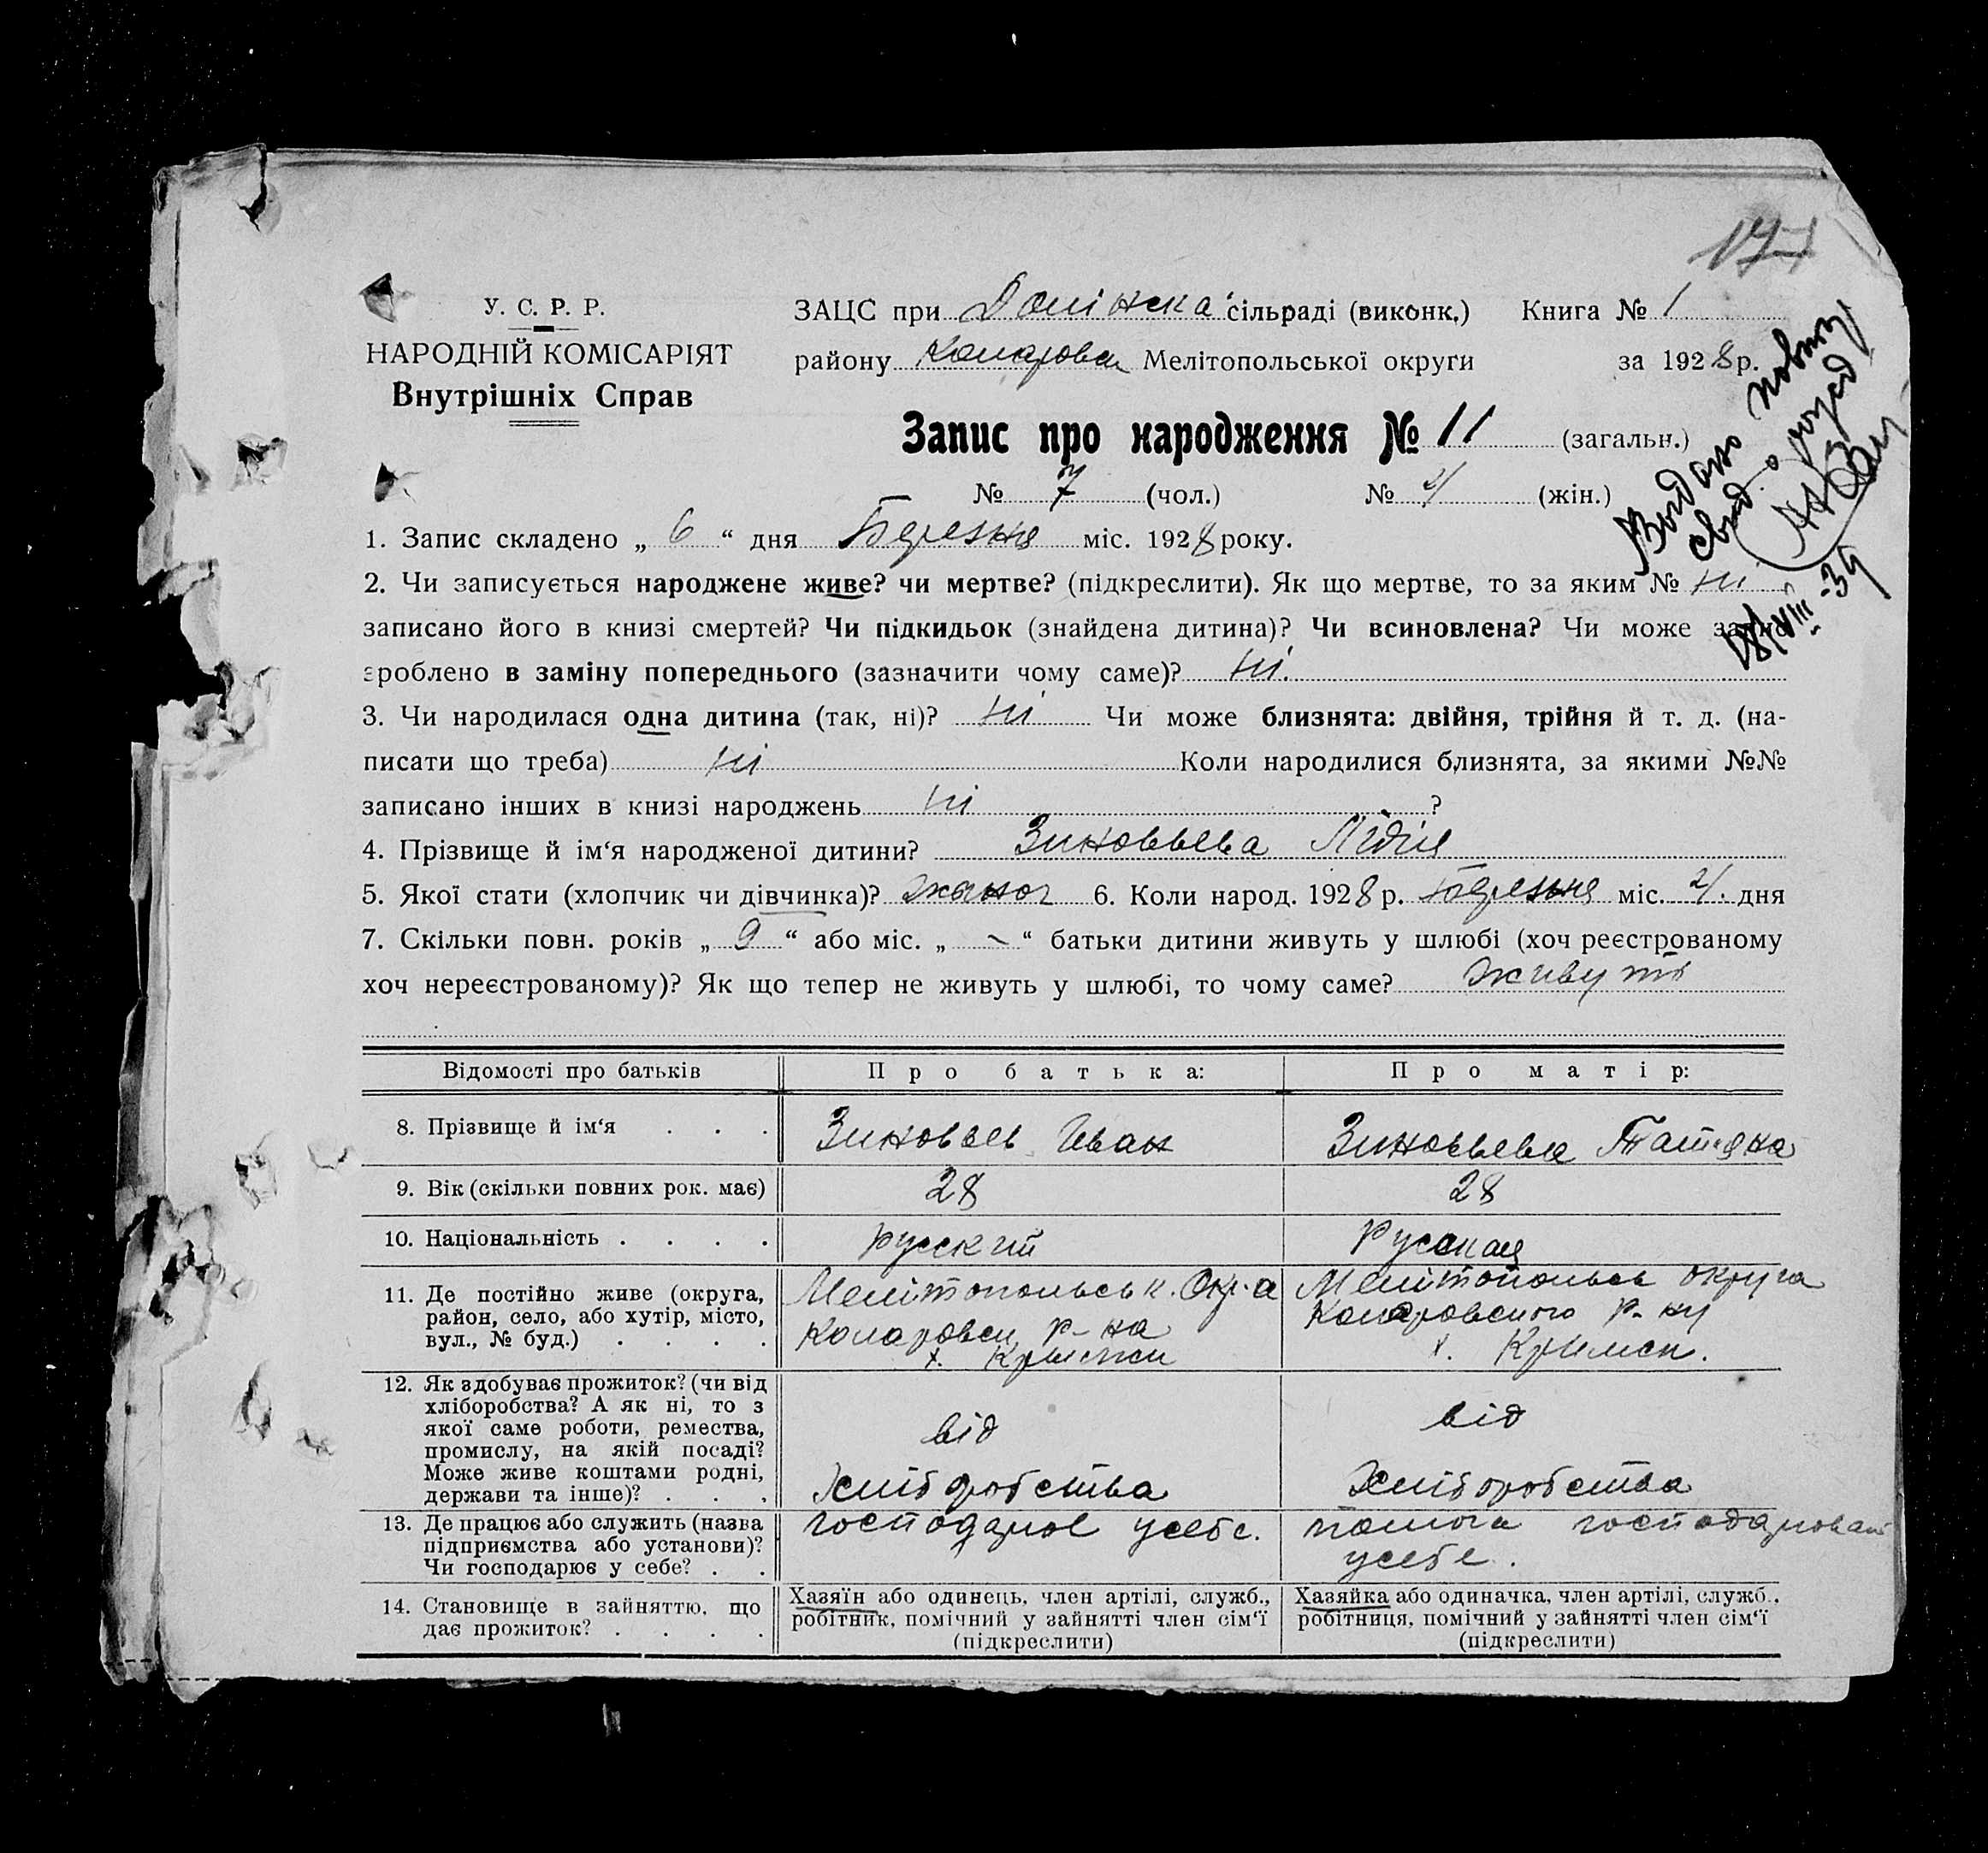 177
У. С. Р. Р.
НАРОДНІЙ КОМІСАРІЯТ
Внутрішніх Справ
ЗАЦС при Долінска сільраді (виконк.) Книга № 1
району Коларовськ Мелітопольської округи за 1928 р.
Запис про народження № 11 (загальн.)
№ 7 (чол.) № 4 (жін.)
Выдано повтор
свид. о рожд
18/VIII-39
1. Запис складено „ 6 “ дня Березня міс. 1928 року.
2. Чи записується народжене живе? чи мертве? (підкреслити). Як що мертве, то за яким № ні
записано його в книзі смертей? Чи підкидьок (знайдена дитина)? Чи всиновлена? Чи може запис
зроблено в заміну попереднього (зазначити чому саме)? ні.
3. Чи народилася одна дитина (так, ні)? ні Чи може близнята: двійня, трійня й т. д. (на-
писати що треба) ні Коли народилися близнята, за якими №№
записано інших в книзі народжень ні ?
4. Прізвище й ім‘я народженої дитини? Зиновьева Лідія
5. Якої стати (хлопчик чи дівчинка)? 6. Коли народ. 1928 р. Березня міс. 4. дня
7. Скільки повн. років „ 9 “ або міс. „ – “ батьки дитини живуть у шлюбі (хоч реєстрованому
хоч нереєстрованому)? Як що тепер не живуть у шлюбі, то чому саме? живуть
Відомості про батьків Про батька: Про матір:
8. Прізвище й ім‘я . . . Зиновьев Иван Зиновьева Татяна
9. Вік (скільки повних рок. має) 28 28
10. Національність . . . . русский Русская
11. Де постійно живе (округа,
район, село, або хутір, місто,
вул., № буд.) . . . .
Мелітопольськ. Окр-а
Коларовск р-на
х. Крымск
Мелітопольск округа
Коларовского р-ну
х. Крымск.
12. Як здобуває прожиток? (чи від
хліборобства? А як ні, то з
якої саме роботи, ремества,
промислу, на якій посаді?
Може живе коштами родні,
держави та інше)? . . .
від
хліборобства
від
хліборобства
13. Де працює або служить (назва
підприємства або установи)?
Чи господарює у себе? . .
господарює усебе.
помога господарювать
усебе.
14. Становище в зайняттю, що
дає прожиток? . . . .
Хазяїн або одинець, член артілі, служб.,
робітник, помічний у зайнятті член сім‘ї
(підкреслити)
Хазяйка або одиначка, член артілі, служб.,
робітниця, помічний у зайнятті член сім‘ї
(підкреслити)